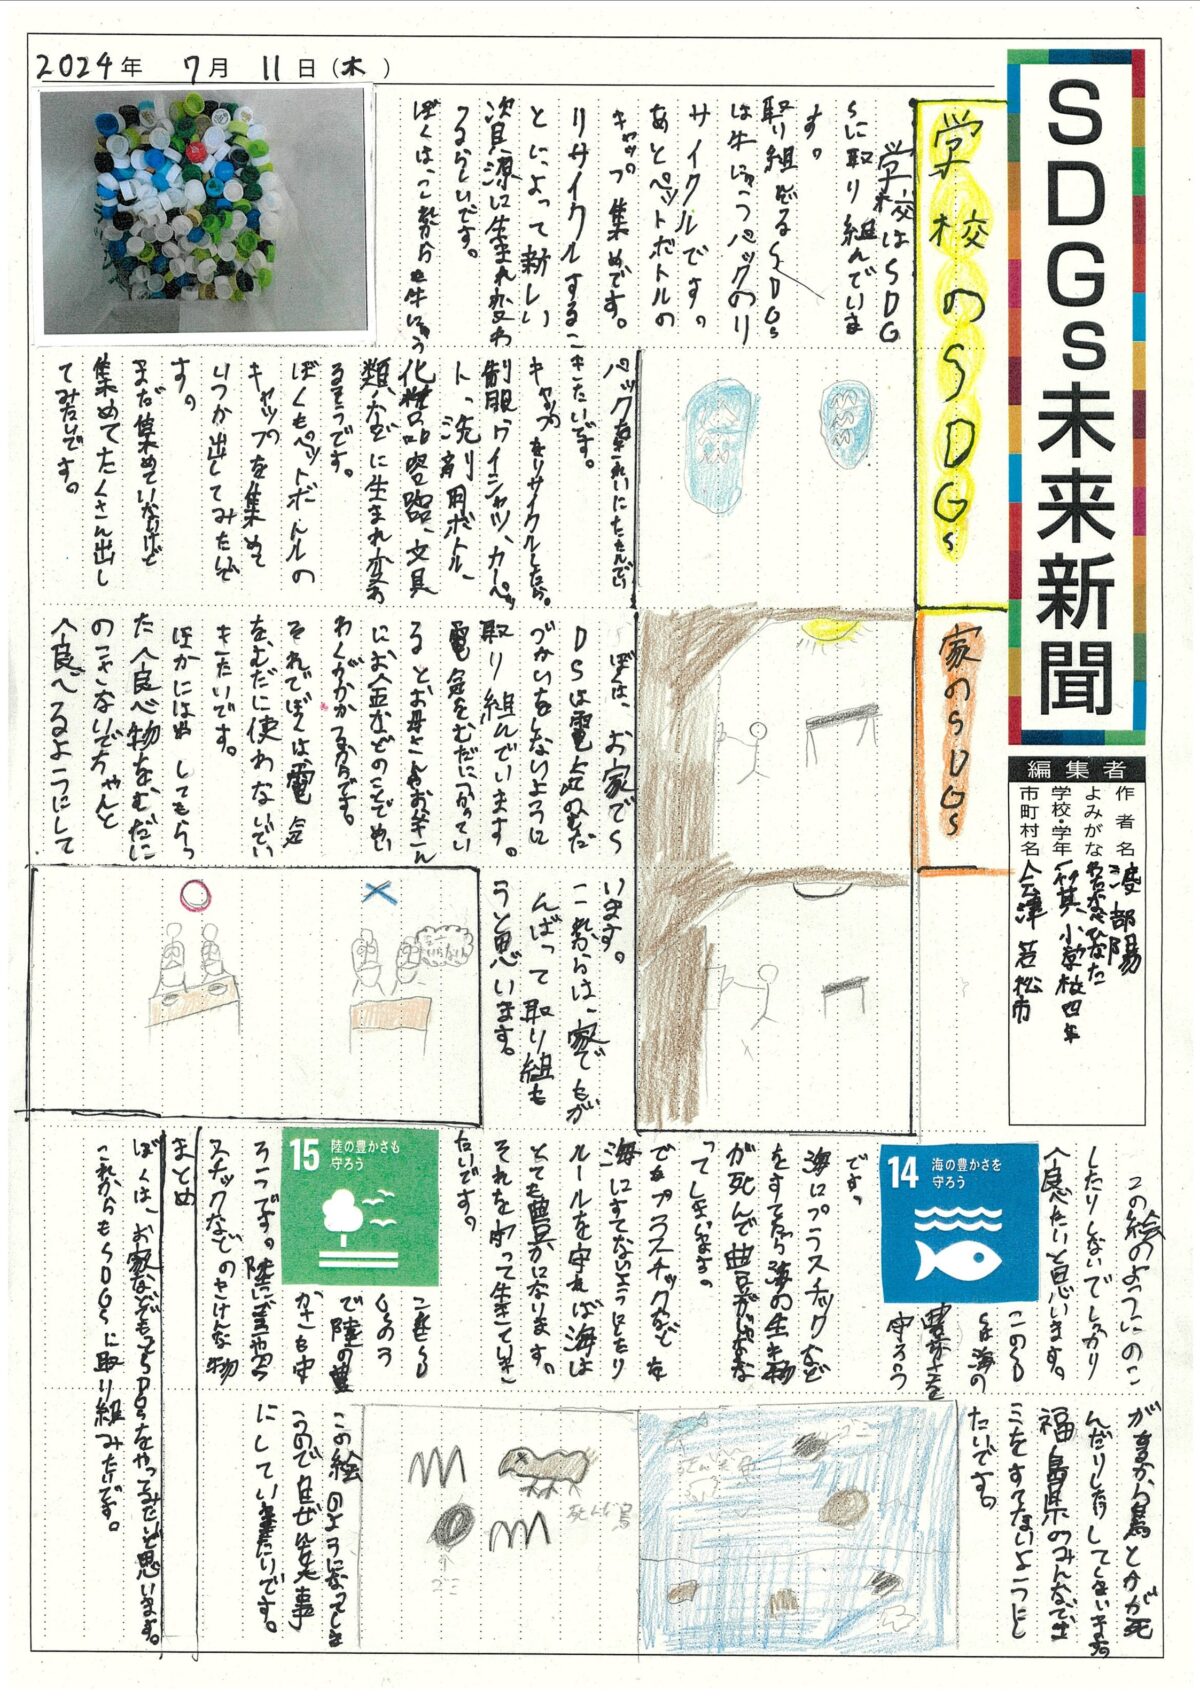 2024年 7月 11日(木)
SDGs未来新聞
編集者
作者名 渡部陽
よみがな わたなべひなた
学校・学年 小学校四年
市町村名 会津若松市
学校のSDGs
学校はSDG
sに取り組んでいま
す。
取り組んでるSDGs
は牛にゅうパックのリ
サイクルです。
あとペットボトルの
キャップ集めです。
リサイクルするこ
とによって新しい
資源に生まれ変わ
るらしいです。
ぼくは、これからも牛にゅう
パックをきれいにたたんでい
きたいです。
キャップをリサイクルしたら、
制服、ワイシャツ、カーペッ
ト、洗剤用ボトル、
化粧品容器、文具
類、などに生まれ変わ
るそうです。
ぼくもペットボトルの
キャップを集めて
いつか出してみたいで
す。
まだ集めていないけど
集めてたくさん出し
てみたいです。
家のSDGs
ぼくは、お家でS
DSは電気のむだ
づかいをしないように
取り組んでいます。
電気をむだにつかってい
るとお母さんやお父さん
にお金などのことでめい
わくがかかるからです。
それでぼくは、電気
を、むだに使わないでい
きたいです。
ほかにはぬ してもらっ
た食べ物をむだに
のこさないでちゃんと
食べるようにして
います。
これからは、家でもが
んばって取り組も
うと思います。
この絵のようにのこ
したりしないでしっかり
食べたいと思います。
14 海の豊かさを
守ろう
このSD
Gsは海の
豊かさを
守ろう
です。
海にプラスチックなど
をすてたら海の生き物
が死んで豊豆がじゃなくな
ってしまいます。
でもプラスチックなどを
海にすてないようにしたり
ルールを守れば海は
とても豊かになります。
それを守って生きていき
たいです。
15 陸の豊かさも
守ろう
これもSD
Gsの1つ
で陸の豊
かさも守
ろうです。陸にゴミやプラ
スチックなどのきけんな物
があるから鳥とかが死
んだりしたりしてしまいます。
福島県のみんなでゴ
ミをすてないようにし
たいです。
ゴミ
死んだ鳥
ゴミ
この絵のようになってしま
うので自ぜんを大事
にしていきたいです。
まとめ
ぼくは、お家などでもSDGsをやってみたいと思います。
これからもSDGsに取り組みたいです。